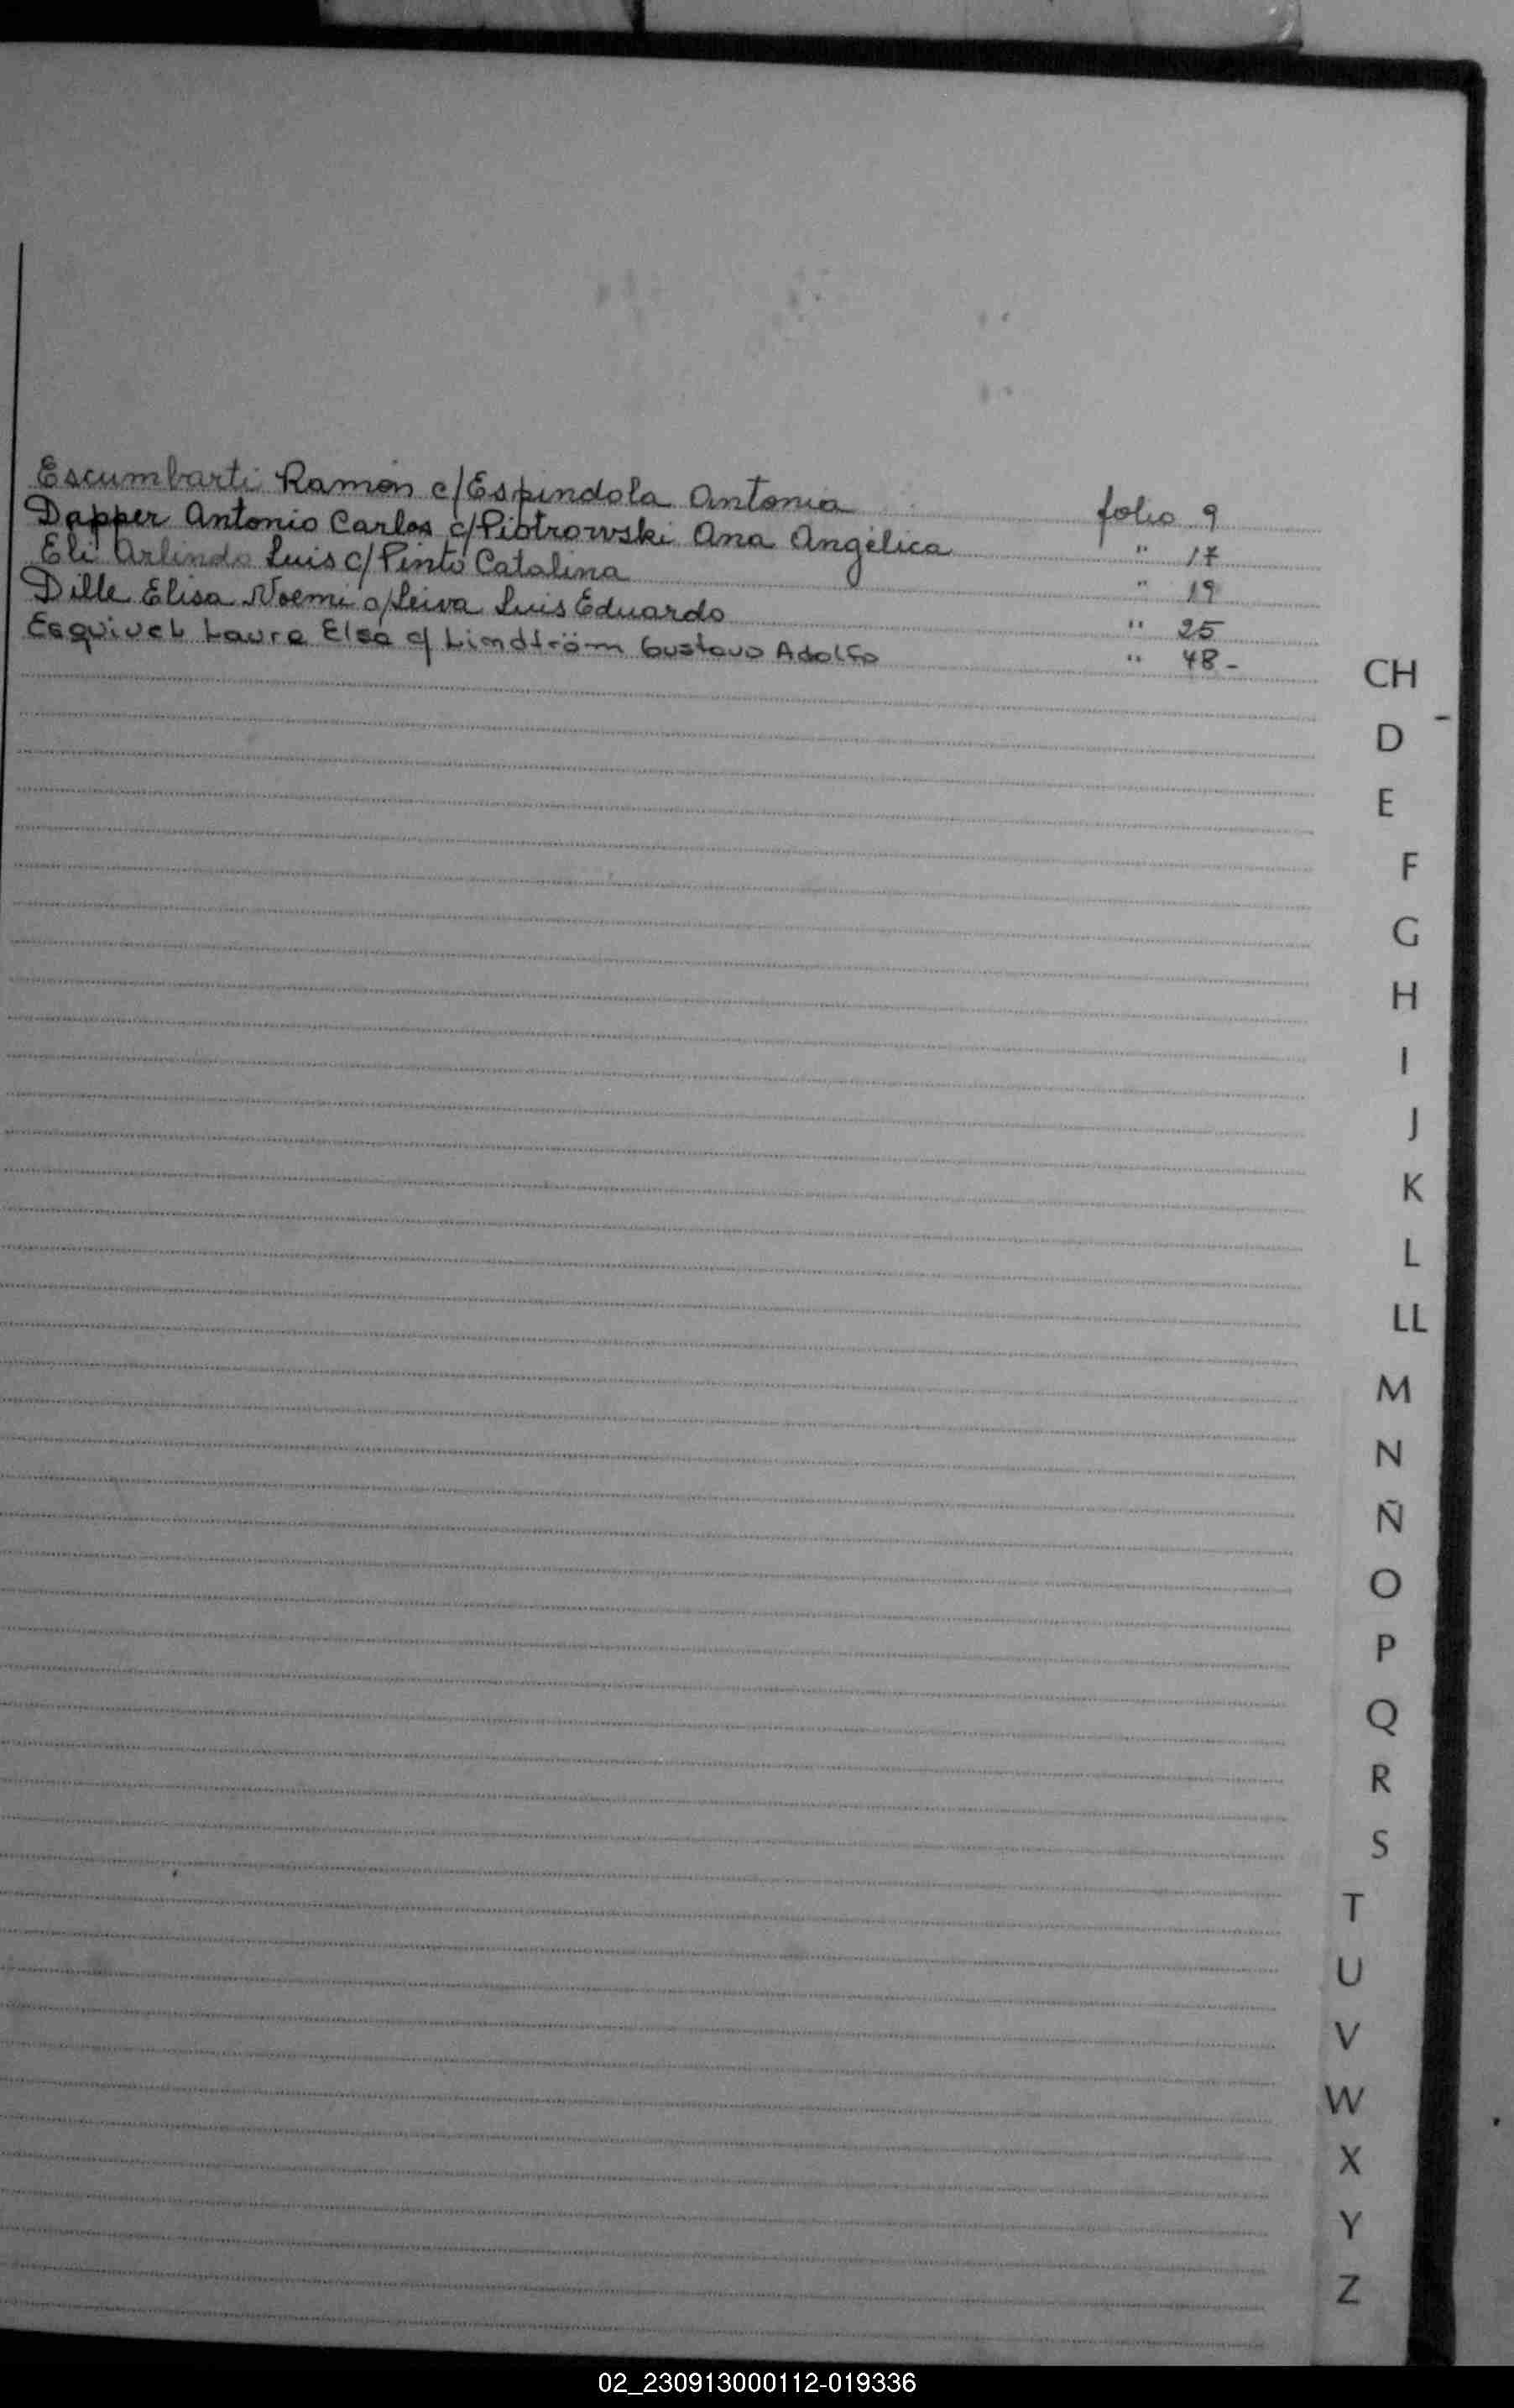 Escumbarti Ramón c/Espindola Antonia folio 9
Dapper Antonio Carlos c/Piotrowski Ana Angélica " 17
Eli Arlindo Luis c/Pinto Catalina " 19
Dille Elisa Noemi c/Leiva Luis Eduardo " 25
Esquivel Laura Elsa c/ Lindström Gustavo Adolfo " 48-
CH
D
E
F
G
H
I
J
K
L
LL
M
N
Ñ
O
P
Q
R
S
T
U
V
W
X
Y
Z
02_230913000112-019336